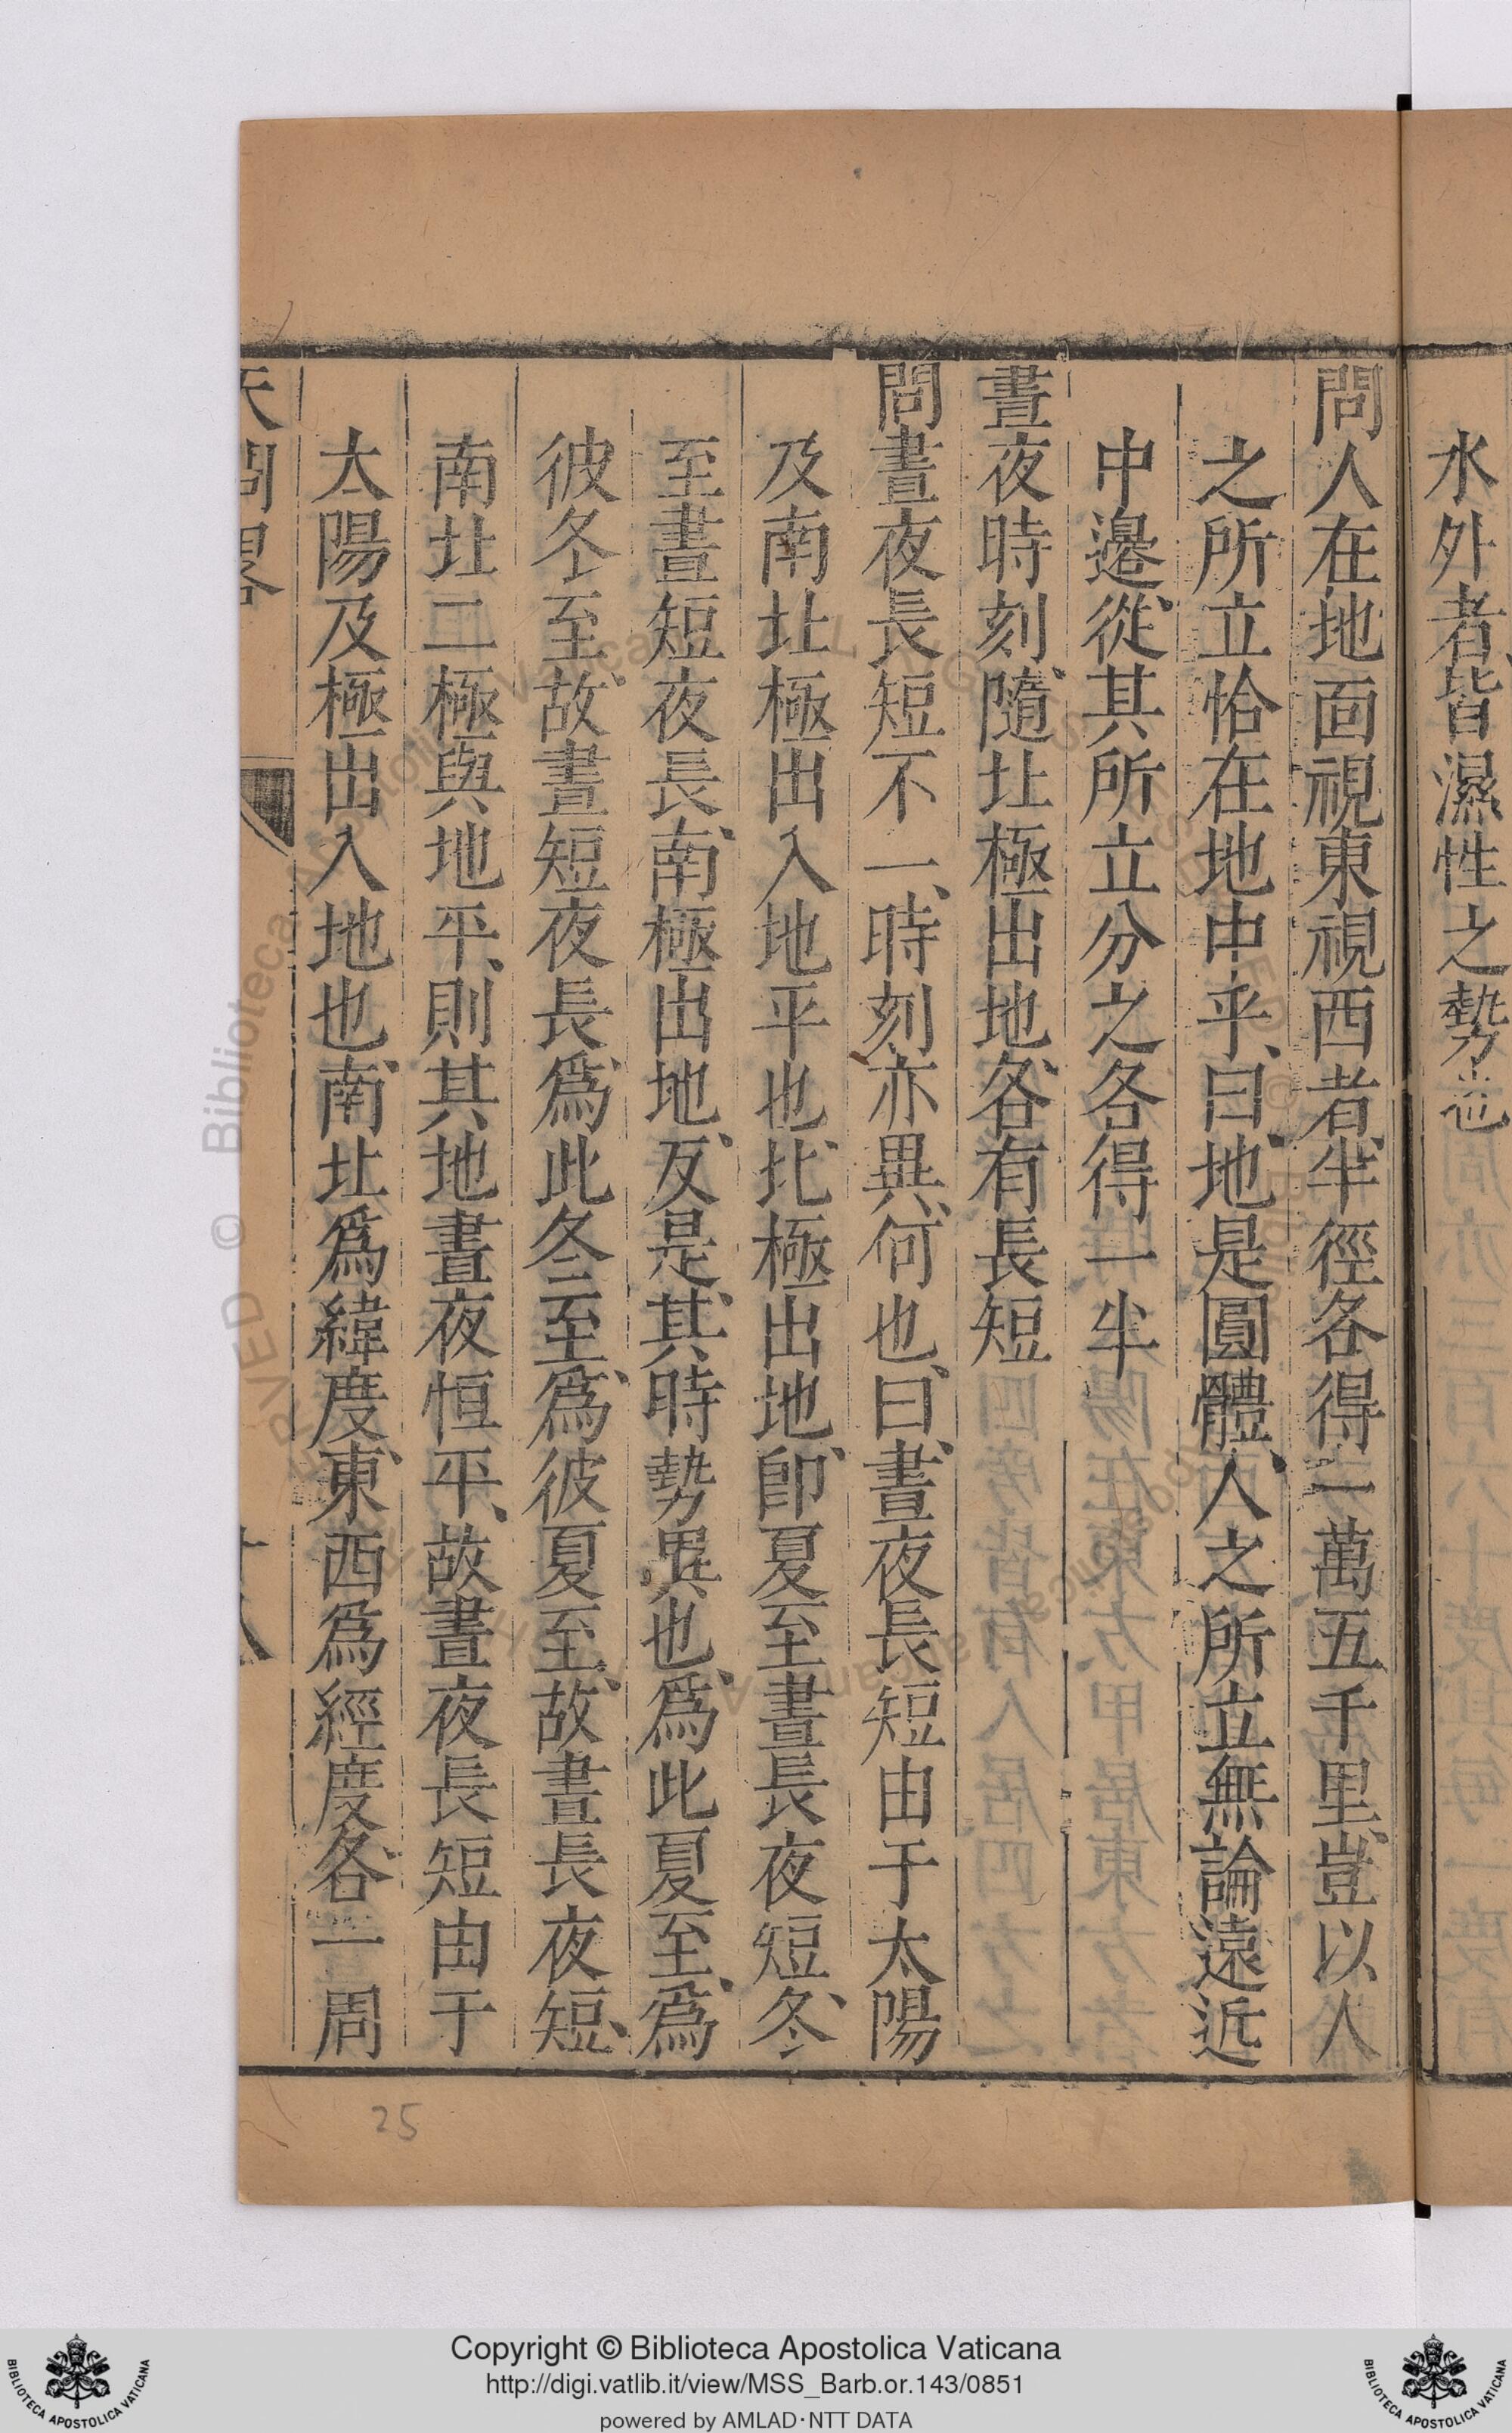 水外者、皆濕性之勢也
問人在地面視東視西者、半徑各得二萬五千里、豈以人
之所立恰在地中乎、曰、地是圓體、人之所立無論遠近
中邊、從其所立分之各得一半
晝夜時刻、隨北極出地、各有長短
問晝夜長短不一、時刻亦異、何也、曰、晝夜長短由于太陽
及南北極出入地平也、北極出地、卽夏至晝長夜短、冬
至晝短夜長、南極出地、反是、其時勢異也、爲此夏至、爲
彼冬至、故晝短夜長、爲此冬至、爲彼夏至、故晝長夜短、
南北二極與地平、則其地晝夜恒平、故晝夜長短由于
太陽及極出入地也、南北爲緯度、東西爲經度、各一周
天問畧
十八
25
Copyright © Biblioteca Apostolica Vaticana
http://digi.vatlib.it/view/MSS_Barb.or.143/0851
powered by AMLAD·NTT DATA
BIBLIOTECA APOSTOLICA VATICANA
BIBLIOTECA APOSTOLICA VATICANA